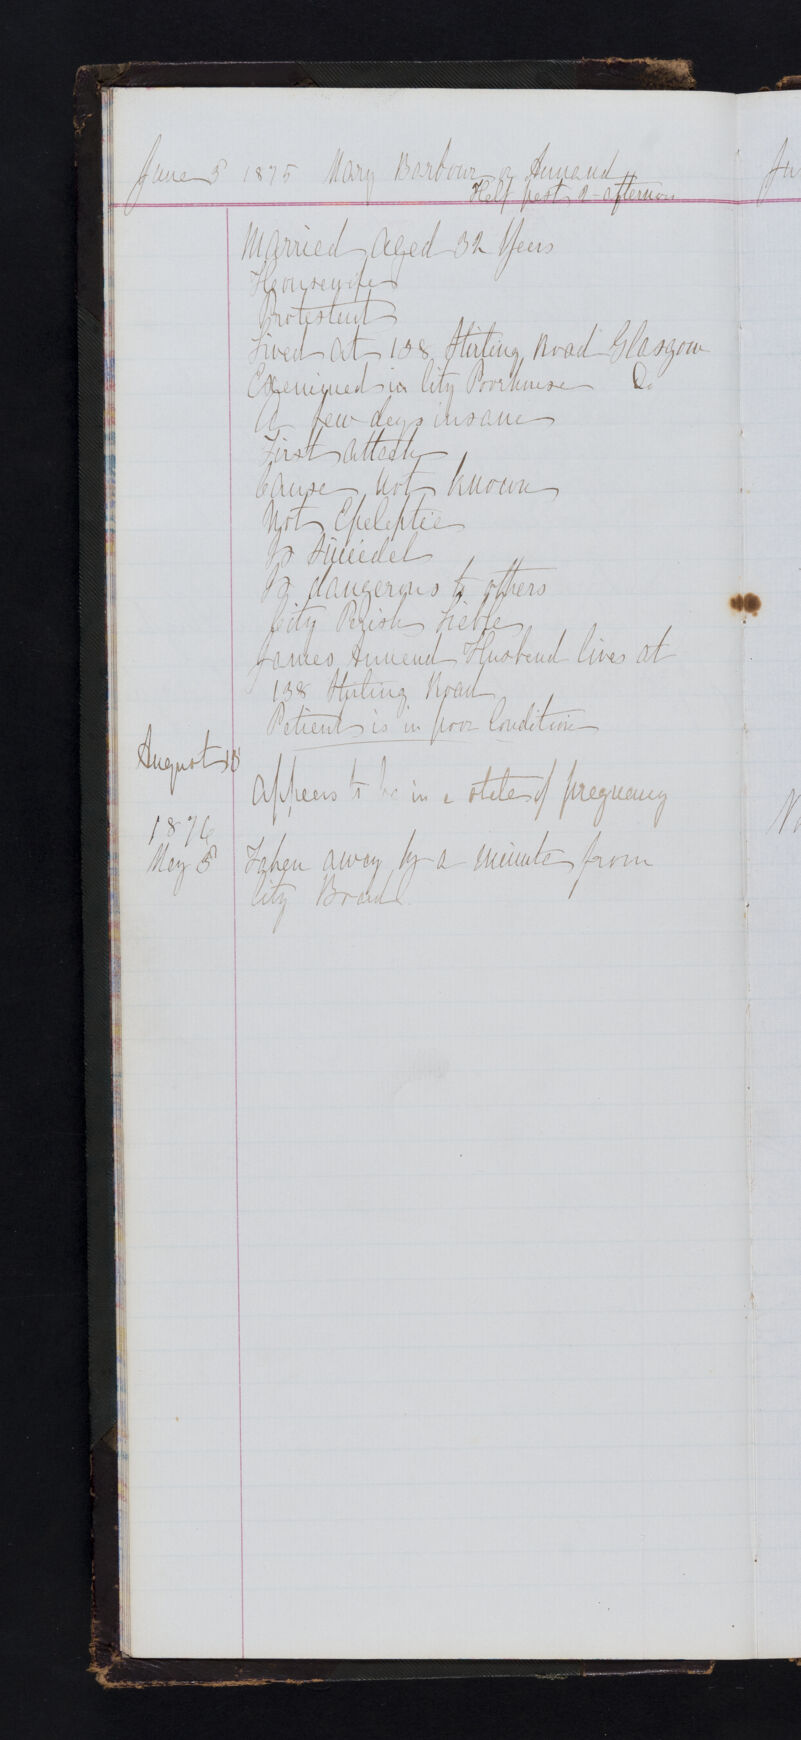 June 5 1875 Mary Barbour or Annand
Half past 2 afternoon
Married aged 32 Years
Housewife
Protestant
Lived at 138 Stirling Road Glasgow
Examined in City Poorhouse Do
A few days insane
First attack
Cause not known
Not Epeleptic
Is Suicidal
Is dangerous to others
City Parish Liable
James Annand Husband lives at
138 Stirling Road
Patient is in poor Condition
August 18
Appears to be in a state of pregnancy
1876
May 5 Taken away by a minute from
City Board